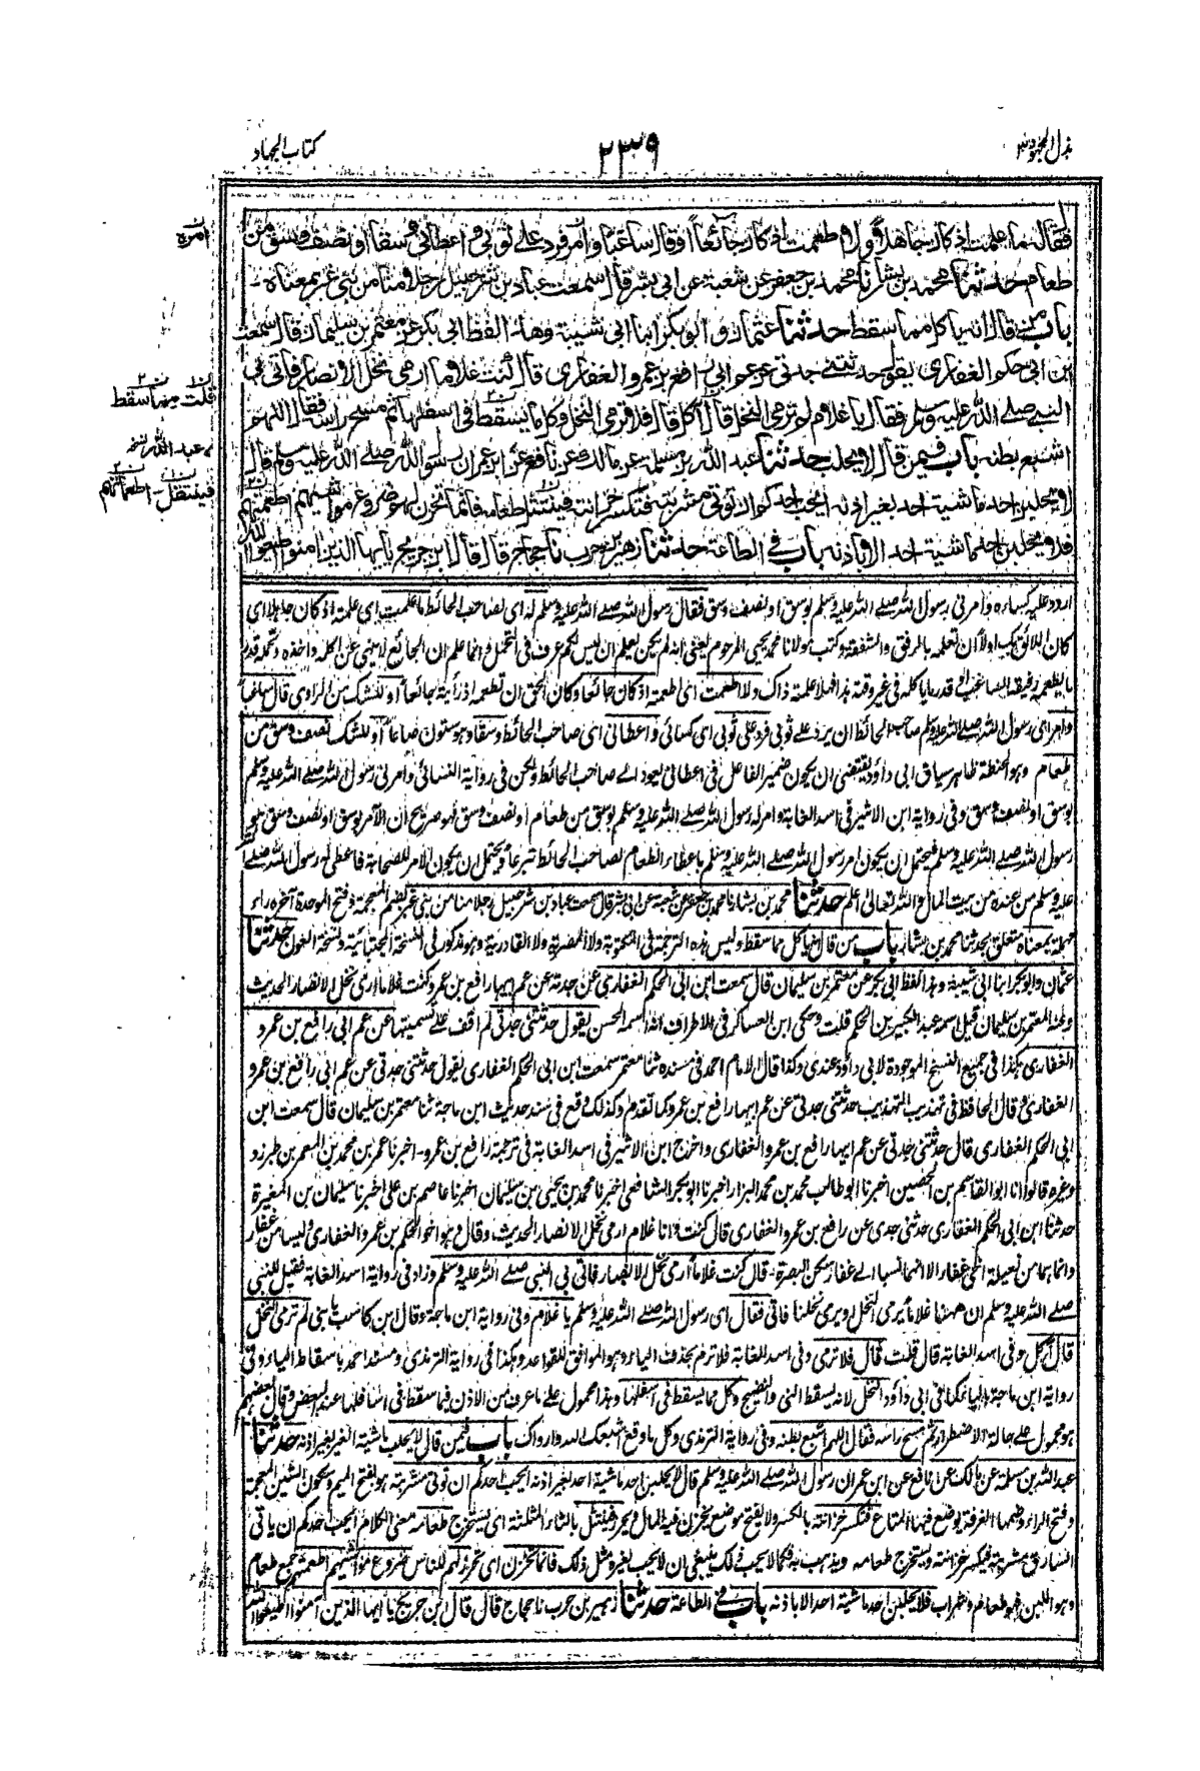 بذل المجهود
٢٣٩
كتاب الجهاد
فقال له ما علمت اذ كان جاهلا ولا اطعمت اذ كان جائعا او قال ساغبا وامر فرد على ثوبي واعطاني وسقا او نصف وسق من
طعام حدثنا محمد بن بشار نا محمد بن جعفر عن شعبة عن ابي بشر قال سمعت عباد بن شرحبيل رجلا منا من بني غبر بمعناه
باب من قال انه يأكل مما سقط حدثنا عثمان وابو بكر ابنا ابي شيبة وهذا لفظ ابي بكر عن معتمر بن سليمان قال سمعت
ابن ابي حكم الغفاري يقول حدثتني جدتي عن عم ابي رافع بن عمرو الغفاري قال كنت غلاما ارمي نخل الانصار فاتي بي
النبي صلے الله عليه وسلم فقال يا غلام لم ترمي النخل قال آكل قال فلا ترمي النخل وكل ما يسقط في اسفلها ثم مسح راسه فقال اللهم
اشبع بطنه باب فيمن قال لا يحلب حدثنا عبد الله بن مسلمة عن مالك عن نافع عن ابن عمران رسول الله صلے الله عليه وسلم قال
لا يحلبن احد ماشية احد بغير اذنه ايحب احدكم ان توتى مشربته فتكسر خزانته فينتثل طعامه فانما تخزن لهم ضروع مواشيهم اطعمتهم
فلا يحلبن احد ماشية احد الا باذنه باب في الطاعة حدثنا زهير بن حرب نا حجاج قال قال ابن جريج يا ايها الذين امنوا اطيعوا الله
امره
قلت مما سقط
عبد الله نسخ
فينتقل اطعماتهم
اردد عليه كساءه وامرني رسول الله صلے الله عليه وسلم بوسق او نصف وسق فقال رسول الله صلے الله عليه وسلم له اي لصاحب الحائط ما علمت اي علمته اذ كان جاهلا اي
كان اللائق بك اولا ان تعلمه بالرفق والشفقة وكتب مولانا محمد يحيى المرحوم يعني انه لم يكن يعلم ان ليس لكم عرف في النخل وانما علم ان الجائع لا ينهي عن اكله واخذه وتحمله قدر
ما يطعمه رفيقه الساغب او قدر ما ياكله في غير وقته هذا فهلا علمته ذاك ولا اطعمت اي اطعمته اذ كان جائعا وكان الحق ان تطعمه اذ رأيته جائعا او للشك من الراوي قال ساغبا
وامر اي رسول الله صلے الله عليه وسلم صاحب الحائط ان يرد على ثوبي فرد على ثوبي اي كسائي واعطاني اي صاحب الحائط وسقا وهو ستون صاعا او للشك نصف وسق من
طعام وهو الحنطة ظاهر سياق ابي داؤد يقتضي ان يكون ضمير الفاعل في اعطاني يعود الے صاحب الحائط ولكن في رواية النسائي وامر لي رسول الله صلے الله عليه وسلم
بوسق او نصف وسق وفي رواية ابن الاثير في اسد الغابة وامر له رسول الله صلے الله عليه وسلم بوسق من طعام او نصف وسق فهو صريح ان الآمر بوسق او نصف وسق هو
رسول الله صلے الله عليه وسلم فيحتمل ان يكون امر رسول الله صلے الله عليه وسلم باعطاء الطعام لصاحب الحائط تبرعا ويحتمل ان يكون الامر للصحابة فاعطى له رسول الله صلے
عليه وسلم من عنده من بيت المال والله تعالى اعلم حدثنا محمد بن بشار نا محمد بن جعفر عن شعبة عن ابي بشر قال سمعت عباد بن شرحبيل رجلا منا من بني غبر بضم المعجمة وفتح الموحدة آخره راء
مهملة بمعناه متعلق بحدثنا محمد بن بشار باب من قال انه يأكل مما سقط وليس هذه الترجمة في المكتوبة ولا المصرية ولا القادرية وهو مذكور في النسخة المجتبائية ونسخة العون حدثنا
عثمان وابو بكر ابنا ابي شيبة وهذا لفظ ابي بكر عن معتمر بن سليمان قال سمعت ابن ابي الحكم الغفاري عن جدته عن عم ابيها رافع بن عمرو كنت غلاما ارمي نخل الانصار الحديث
وعنه المعتمر بن سليمان قيل اسمه عبد الكبير بن الحكم قلت وحكى ابن العساكر في الاطراف ان اسمه الحسن يقول حدثتني جدتي لم اقف على تسميتها عن عم ابي رافع بن عمرو
الغفاري هكذا في جميع النسخ الموجودة لابي داؤد عندي وكذا قال الامام احمد في مسنده ثنا معتمر سمعت ابن ابي الحكم الغفاري يقول حدثتني جدتي عن عم ابي رافع بن عمرو
الغفاري وقال الحافظ في تهذيب التهذيب حدثتني جدتي عن عم ابيها رافع بن عمرو كما تقدم وكذلك وقع في سند حديث ابن ماجة ثنا معتمر بن سليمان قال سمعت ابن
ابي الحكم الغفاري قال حدثتني جدتي عن عم ابيها رافع بن عمرو الغفاري واخرج ابن الاثير في اسد الغابة في ترجمة رافع بن عمرو- اخبرنا عمر بن محمد بن المعمر بن طبرزد
وغيره قالوا انا ابو القاسم بن الحصين اخبرنا ابو طالب محمد بن محمد البزار اخبرنا ابو بكر الشافعي اخبرنا محمد بن يحيى بن سليمان اخبرنا عاصم بن علي اخبرنا سليمان بن المغيرة
حدثنا ابن ابي الحكم الغفاري حدثني جدي عن رافع بن عمرو الغفاري قال كنت وانا غلام ارمي نخل الانصار الحديث، وقال وهو اخو الحكم بن عمرو الغفاري وليسا من غفار
وانما هما من نعيلة اخي غفار الا انهما نسبا الے غفار سكن البصرة- قال كنت غلاما ارمي نخل الانصار فاتي بي النبي صلے الله عليه وسلم وزاد في رواية اسد الغابة فقيل للنبي
صلے الله عليه وسلم ان ههنا غلاما يرمي النخل ويرمي نخلنا فاتي فقال اي رسول الله صلے الله عليه وسلم يا غلام وفي رواية ابن ماجة وقال ابن كاسب يا بني لم ترمي النخل
قال آكل وفي اسد الغابة قال قلت قال فلا ترمي وفي اسد الغابة فلا ترم بحذف الياء وهو الموافق للقواعد وهكذا في رواية الترمذي ومسند احمد باسقاط الياء وفي
رواية ابن ماجة بالياء كما في ابي داؤد النخل لانه يسقط الني والنضيج وكل مما يسقط في اسفلها وهذا محمول على ما عرف من الاذن فيما سقط في اسافلها عند البعض وقال بعضهم
هو محمول على حالة الاضطرار ثم مسح راسه فقال اللهم اشبع بطنه وفي رواية الترمذي وكل ما وقع اشبعك الله وارواك باب فيمن قال لا يحلب ماشية الغير بغير اذنه حدثنا
عبد الله بن مسلمة عن مالك عن نافع عن ابن عمر ان رسول الله صلے الله عليه وسلم قال لا يحلبن احد ماشية احد بغير اذنه ايحب احدكم ان توتى مشربته هو بفتح الميم وسكون الشين المعجمة
وفتح الراء وضمها الغرفة يوضع فيها المتاع فتكسر خزانته بالكسر ولا يفتح موضع يخزن فيه المال وغيره فينتثل بالثاء المثلثة اي يستخرج طعامه معنى الكلام ايحب احدكم ان ياتي
السارق مشربته فيكسر خزانته ويستخرج طعامه ويذهب به فكما لا يحب ذلك ينبغي ان لا يحب لغيره مثل ذلك فانما تخزن اي تحرز لهم للناس ضروع مواشيهم اطعمتهم جمع طعام
وهو اللبن فهو طعام وشراب فلا يحلبن احد ماشية احد الا باذنه باب في الطاعة حدثنا زهير بن حرب نا حجاج قال قال ابن جريج يا ايها الذين آمنوا اطيعوا الله